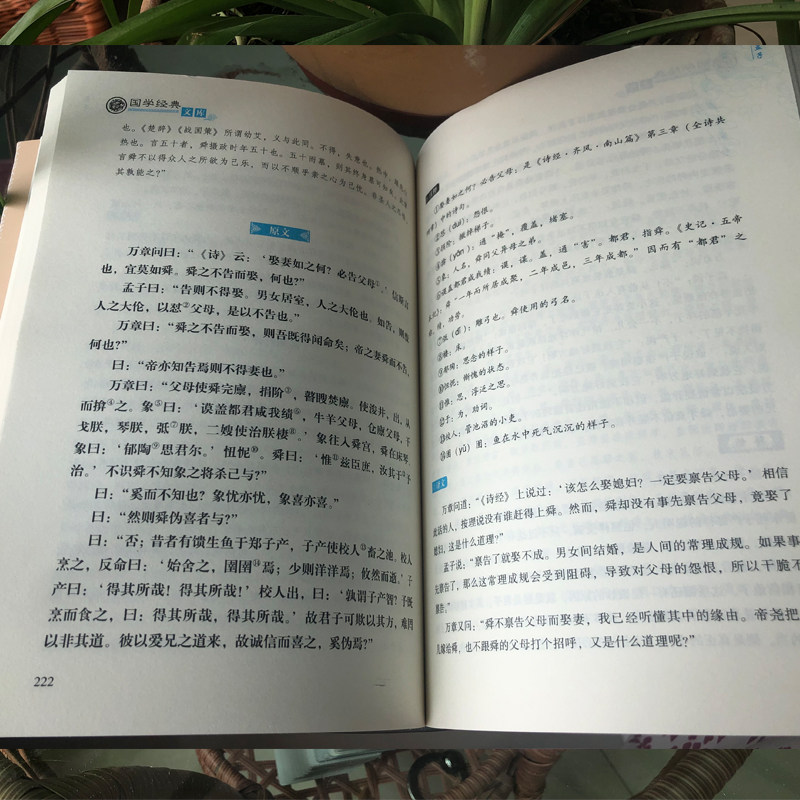 国学经典
文库
也。《楚辞》《战国策》所谓幼艾，义与此同。不得，失意也。热中，躁急心
热也。言五十者，舜摄政时年五十也。五十而慕，
言舜不以得众人之所欲为己乐，而以不顺乎亲之心为己忧。
其孰能之？”
原文
万章问曰：“《诗》云：‘娶妻如之何？必告父母①。’信斯言
也，宜莫如舜。舜之不告而娶，何也？”
孟子曰：“告则不得娶。男女居室，人之大伦也。如告，则废
人之大伦，以怼②父母，是以不告也。”
万章曰：“舜之不告而娶，则吾既得闻命矣；帝之妻舜而不告，
何也？”
曰：“帝亦知告焉则不得妻也。”
万章曰：“父母使舜完廪，捐阶③，瞽瞍焚廪。使浚井，出，从
而揜④之。象⑤曰：‘谟盖都君咸我绩⑥，牛羊父母，仓廪父母，干
戈朕，琴朕，弤⑦朕，二嫂使治朕棲⑧。’象往入舜宫，舜在床琴。
象曰：‘郁陶⑨思君尔。’忸怩⑩。舜曰：‘惟⑪兹臣庶，汝其于⑫予
治。’不识舜不知象之将杀己与？”
曰：“奚而不知也？象忧亦忧，象喜亦喜。”
曰：“然则舜伪喜者与？”
曰：“否；昔者有馈生鱼于郑子产，子产使校人⑬畜之池。校人
烹之，反命曰：‘始舍之，圉圉⑭焉；少则洋洋焉；攸然而逝。’子
产曰：‘得其所哉！得其所哉！’校人出，曰：‘孰谓子产智？予既
烹而食之，曰：得其所哉，得其所哉。’故君子可欺以其方，难罔
以非其道。彼以爱兄之道来，故诚信而喜之，奚伪焉？”
222
①娶妻如之何？必告父母：是《诗经·齐风·南山篇》第三章（全诗共
中的诗句。
②怼（duì）：怨恨。
③捐阶：搬掉梯子。
④揜（yǎn）：通“掩”，覆盖，堵塞。
⑤象：人名，舜同父异母之弟。
⑥谟盖都君咸我绩：谟，谋。盖，通“害”。都君，指舜。《史记·五帝
本纪》：舜一年而所居成聚，二年成邑，三年成都。”因而有“都君”之
称。绩，功劳。
⑦弤（dǐ）：雕弓也。舜使用的弓名。
⑧棲：床。
⑨郁陶：思念的样子。
⑩忸怩：惭愧的状态。
⑪惟：思，浮泛之思。
⑫于：为，助词。
⑬校人：管池沼的小吏。
⑭圉（yǔ）圉：鱼在水中死气沉沉的样子。
译文
万章问道：“《诗经》上说过：‘该怎么娶媳妇？一定要禀告父母。’相信
此话的人，按理说没有谁赶得上舜。然而，舜却没有事先禀告父母，竟娶了
媳妇，这是什么道理？”
孟子说：“禀告了就娶不成。男女间结婚，是人间的常理成规。如果事
先禀告了，那么这常理成规会受到阻碍，导致对父母的怨恨，所以干脆不
禀告。”
万章又问：“舜不禀告父母而娶妻，我已经听懂其中的缘由。帝尧把
儿嫁给舜，也不跟舜的父母打个招呼，又是什么道理呢？”